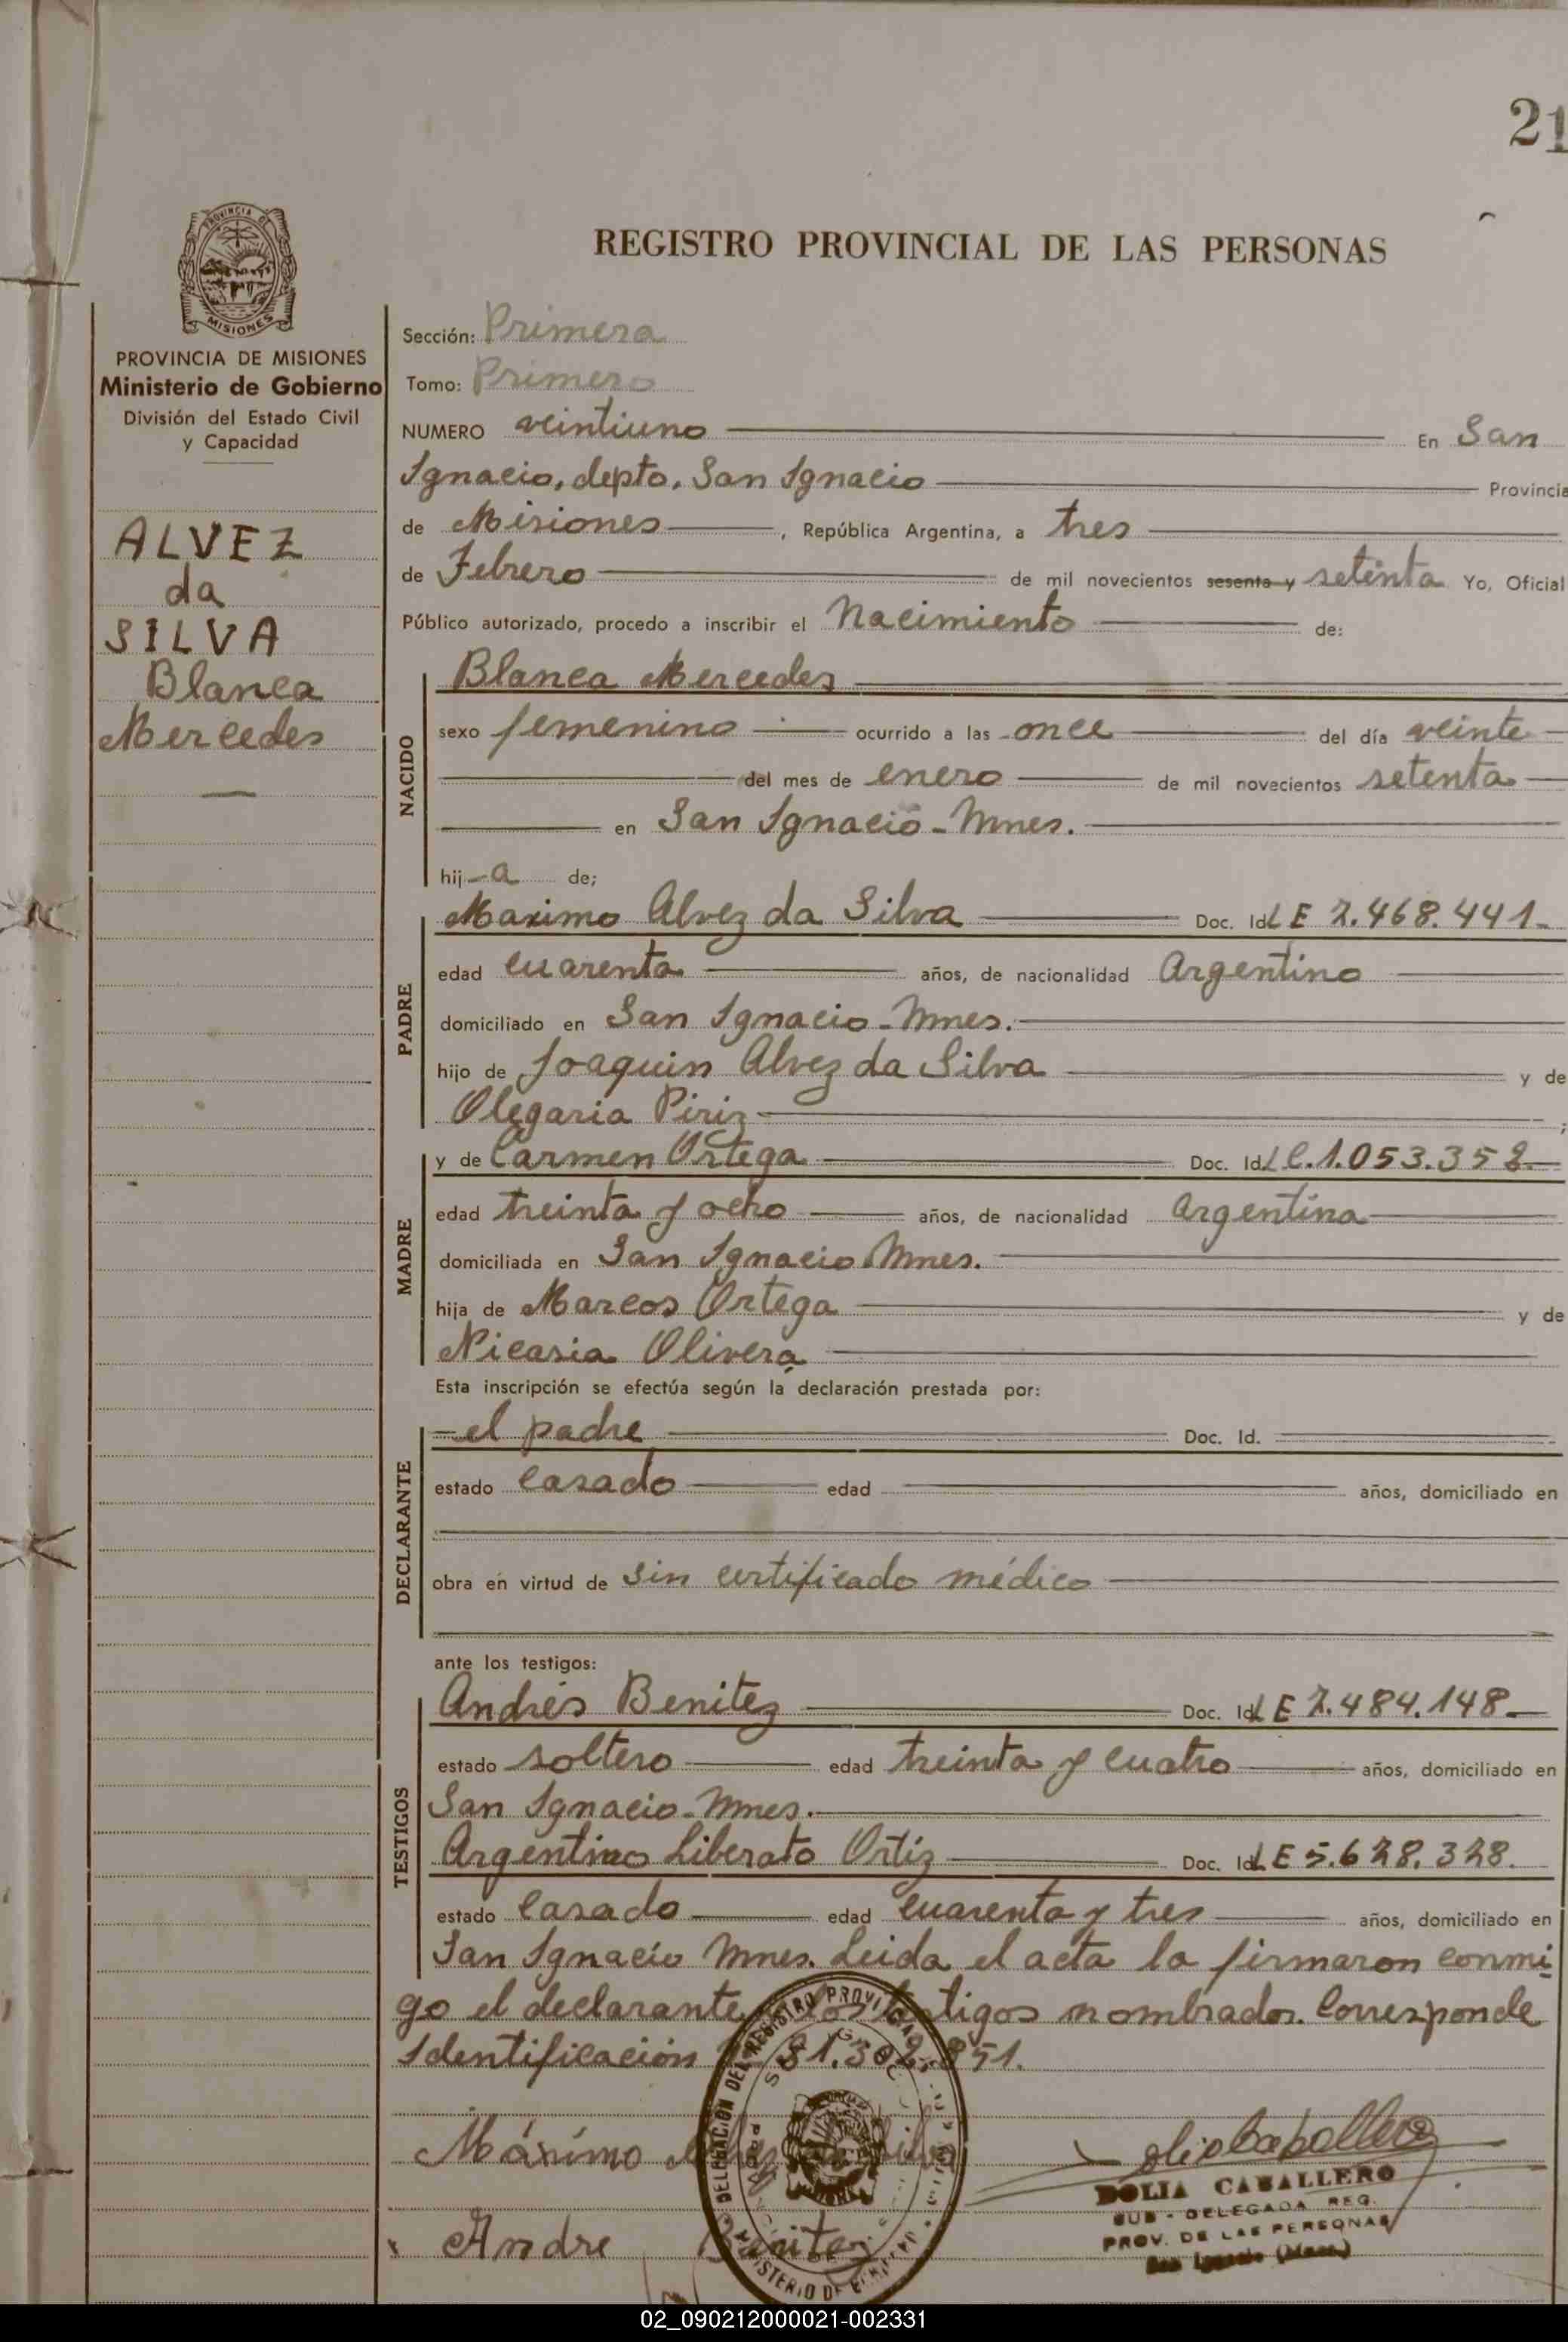 21
REGISTRO PROVINCIAL DE LAS PERSONAS
PROVINCIA DE MISIONES
Ministerio de Gobierno
División del Estado Civil
y Capacidad
ALVEZ
da
SILVA
Blanca
Mercedes
Sección: Primera
Tomo: Primero
NUMERO veintiuno En San
Ignacio, depto. San Ignacio Provincia
de Misiones, República Argentina, a tres
de Febrero de mil novecientos sesenta y setenta Yo, Oficial
Público autorizado, procedo a inscribir el Nacimiento de:
NACIDO
Blanca Mercedes
sexo femenino ocurrido a las once del día veinte
del mes de enero de mil novecientos setenta
en San Ignacio - Mnes.
hij-a de;
PADRE
Maximo Alvez da Silva Doc. Id. LE 7.468.441-
edad cuarenta años, de nacionalidad Argentino
domiciliado en San Ignacio - Mnes.
hijo de Joaquin Alvez da Silva y de
Olegaria Piriz ;
MADRE
y de Carmen Ortega Doc. Id. LC.1.053.352-
edad treinta y ocho años, de nacionalidad Argentina
domiciliada en San Ignacio Mnes.
hija de Marcos Ortega y de
Nicasia Olivera
Esta inscripción se efectúa según la declaración prestada por:
DECLARANTE
-el padre Doc. Id.
estado casado edad años, domiciliado en
obra en virtud de sin certificado médico
ante los testigos:
TESTIGOS
Andrés Benitez Doc. Id. LE 7.484.148-
estado soltero edad treinta y cuatro años, domiciliado en
San Ignacio - Mnes.
Argentino Liberato Ortiz Doc. Id. LE 5.678.378.
estado casado edad cuarenta y tres años, domiciliado en
San Ignacio Mnes. Leida el acta la firmaron conmi
go el declarante y los testigos nombrados. Corresponde
Identificación 21.302.851.
Máximo Alvez da Silva
Andre Benitez
DOLIA CABALLERO
SUB - DELEGADA REG.
PROV. DE LAS PERSONAS
San Ignacio (Mnes.)
02_090212000021-002331